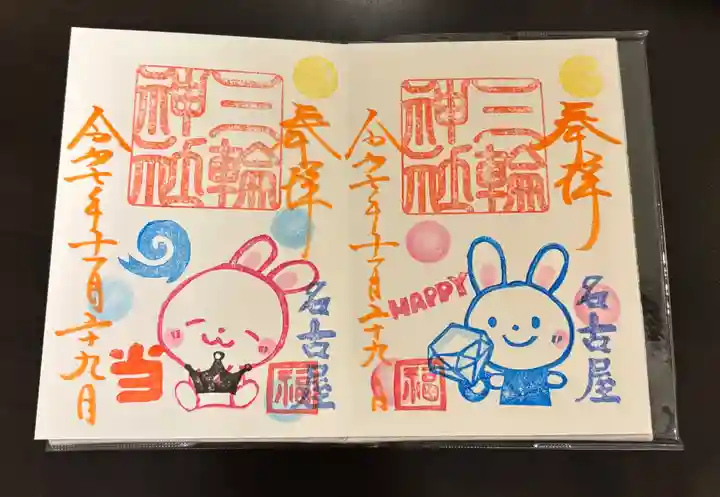 奉拝
三輪
神社
名古屋
HAPPY
福
令和七年十一月二十九日
奉拝
三輪
神社
名古屋
福
当
令和七年十一月二十九日